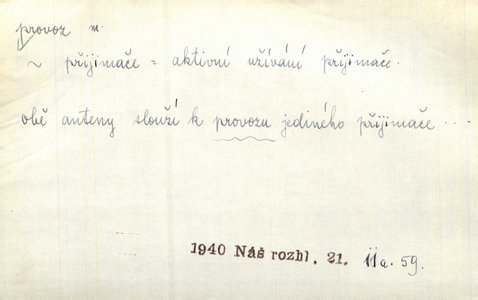 provoz m.
~ přijimače = aktivní užívání přijimače.
obě anteny slouží k provozu jediného přijimače ...
1940 Náš rozhl. 21. 11a. 59.